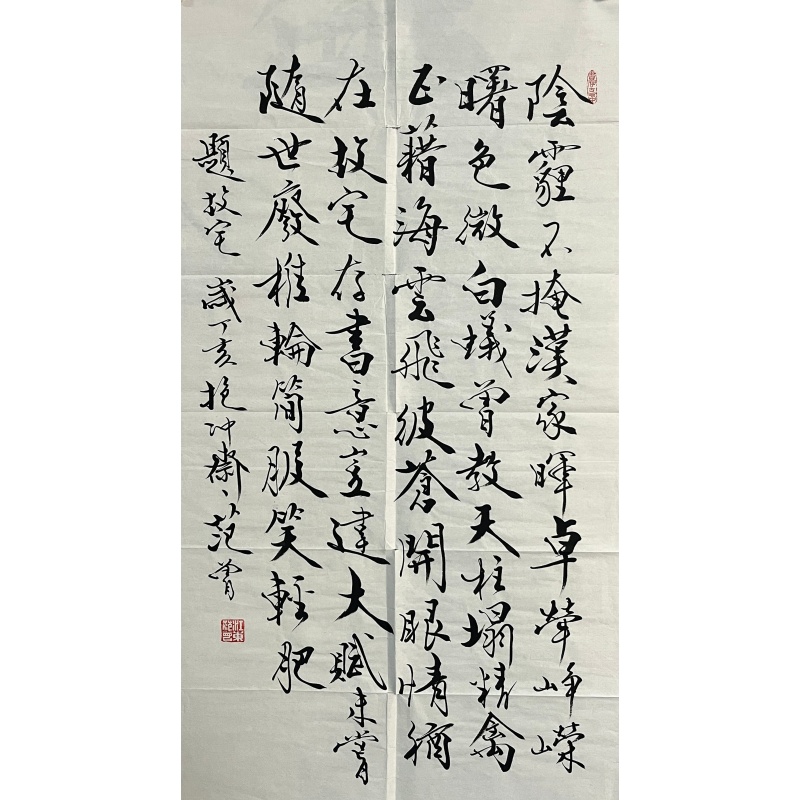 陰霾不掩漢家暉卓犖崢嶸
曙色微白蟻曾教天柱塌精禽
正藉海雲飛彼蒼開眼情猶
在故宅存書意違大賦未嘗
隨世廢椎輪簡服笑輕肥
題故宅 歲丁亥抱沖齋范曾